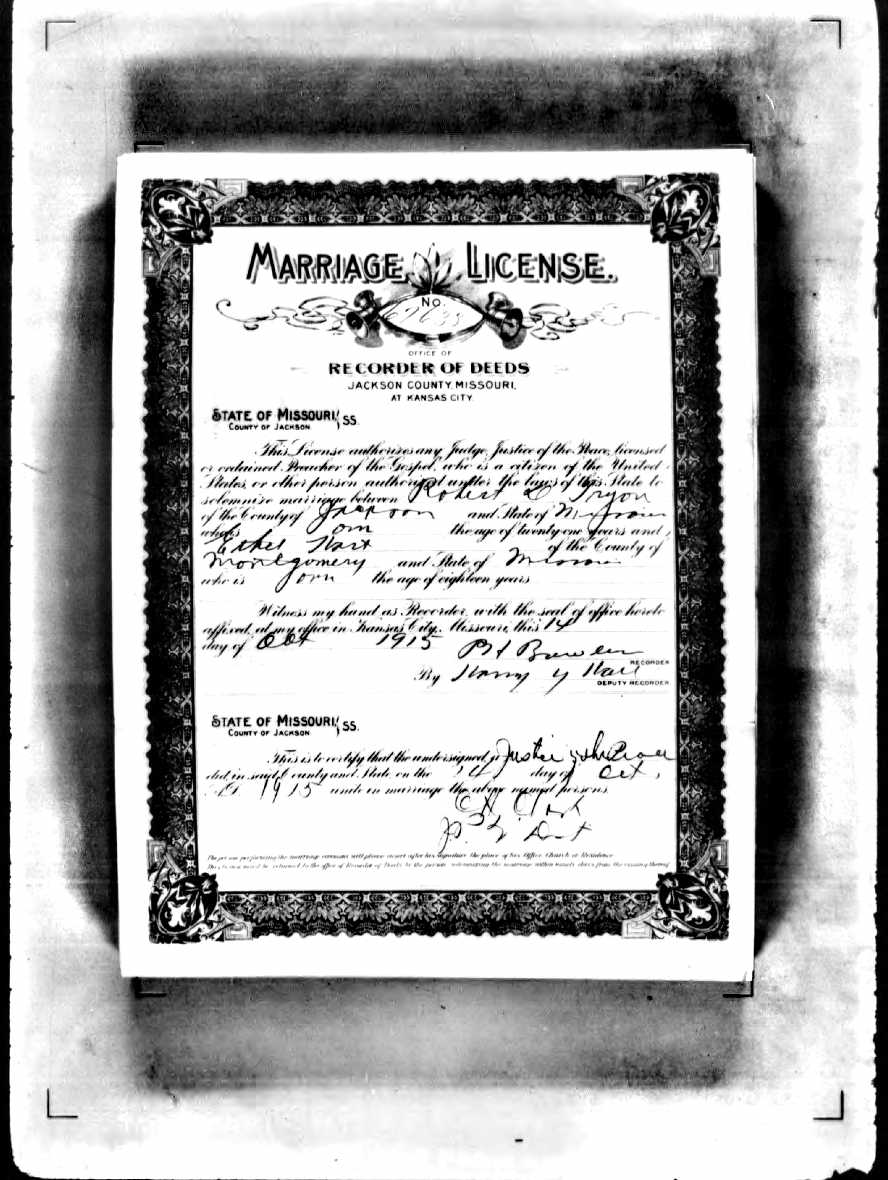 MARRIAGE LICENSE.
No.
OFFICE OF
RECORDER OF DEEDS
JACKSON COUNTY, MISSOURI,
AT KANSAS CITY.
STATE OF MISSOURI, } SS.
COUNTY OF JACKSON
This License authorizes any Judge, Justice of the Peace, licensed
or ordained Preacher of the Gospel, who is a citizen of the United
States, or other person authorized under the laws of this State to
solemnize marriage between Robert L Tryon
of the County of Jackson and State of Missouri
who is over the age of twenty-one years and
Ethel Hart of the County of
Montgomery and State of Missouri
who is over the age of eighteen years
Witness my hand as Recorder, with the seal of office hereto
affixed, at my office in Kansas City, Missouri, this 14
day of Oct 1915
RECORDER
By Harry
DEPUTY RECORDER.
STATE OF MISSOURI, } SS.
COUNTY OF JACKSON
This is to certify that the undersigned, a Justice of the Peace
did, in said County and State on the 14 day of Oct,
A.D. 1915 unite in marriage the above named persons
The person performing the marriage ceremony will please insert after his signature the place of his Office, Church or Residence